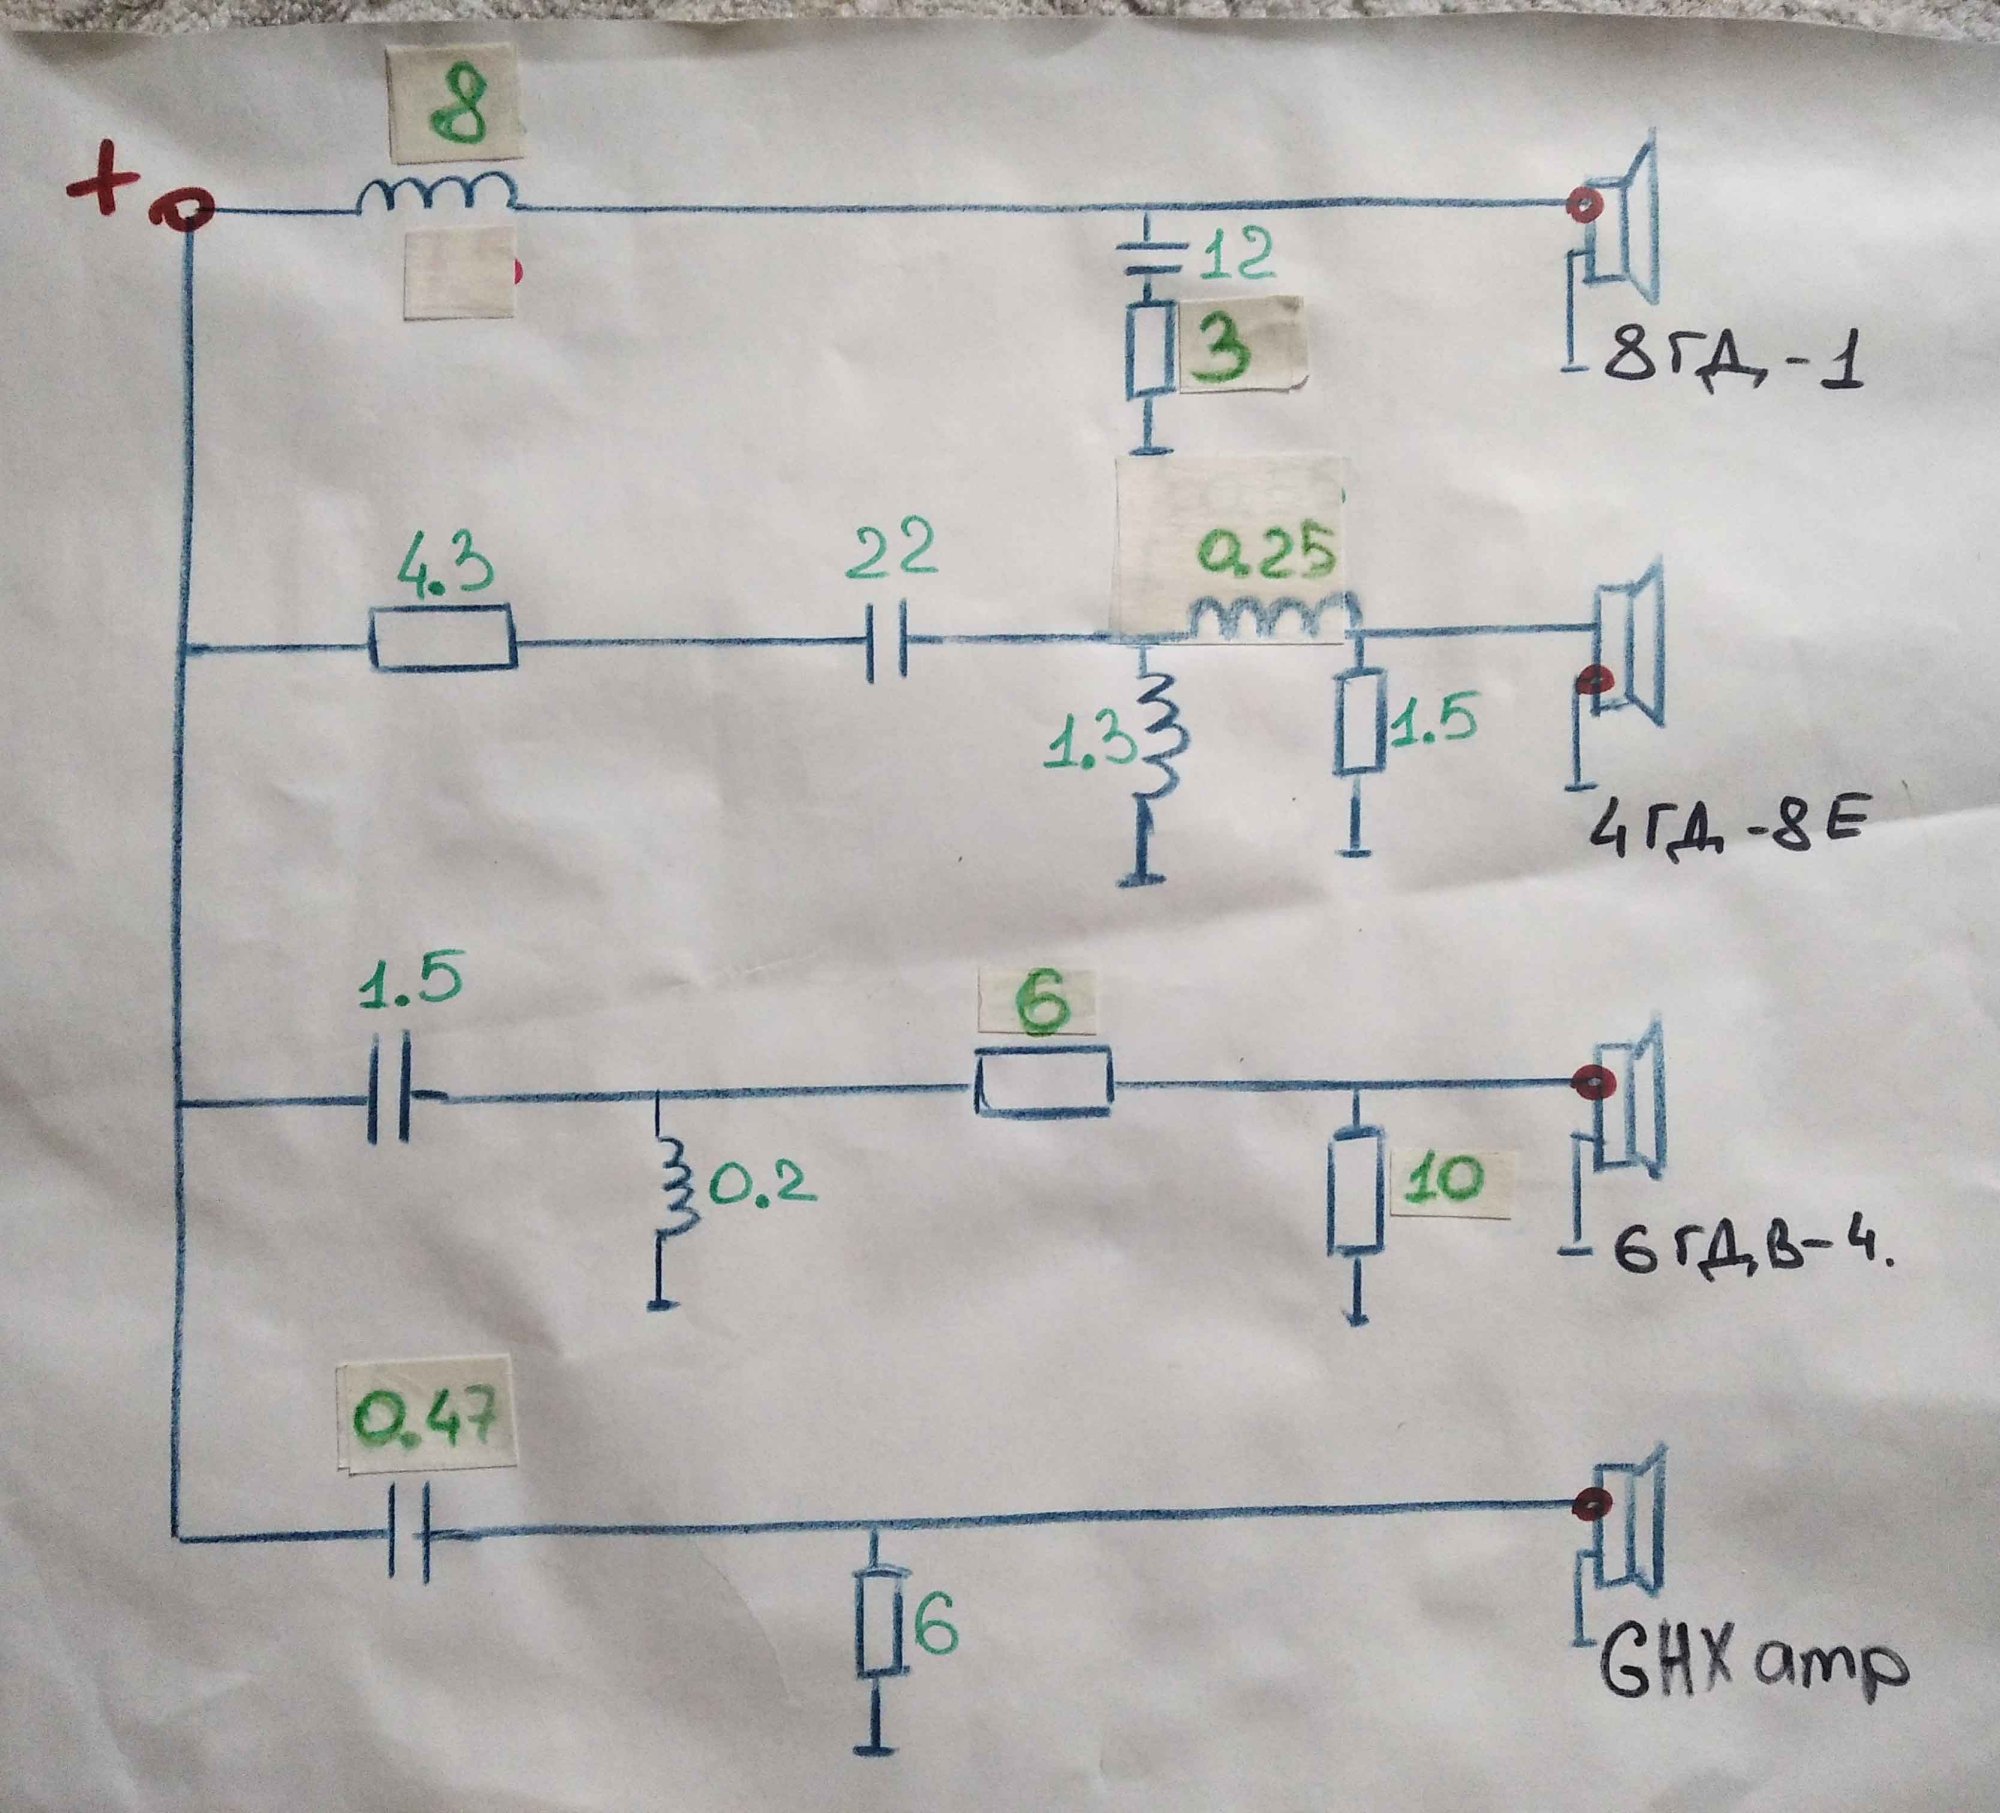 8
+
12
3
8ГД-1
4.3
22
0.25
1.3
1.5
4ГД-8Е
1.5
6
0.2
10
6ГДВ-4.
0.47
6
GHXamp